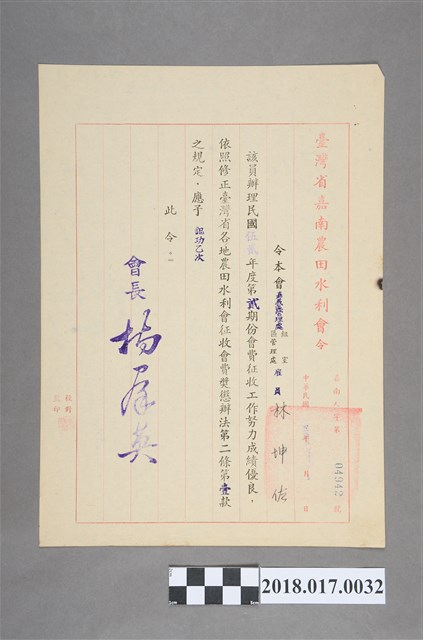 臺灣省嘉南農田水利會令
嘉南 字第 04942 號
中華民國 年 月 日
令本會嘉義區管理處 組室 區管理處 雇員 林坤佑
該員辦理民國伍貳年度第貳期份會費征收工作努力成績優良，
依照修正臺灣省各地農田水利會征收會費獎懲辦法第二條第壹款
之規定，應予 記功乙次
此令
會長 楊群英
校對
監印
2018.017.0032